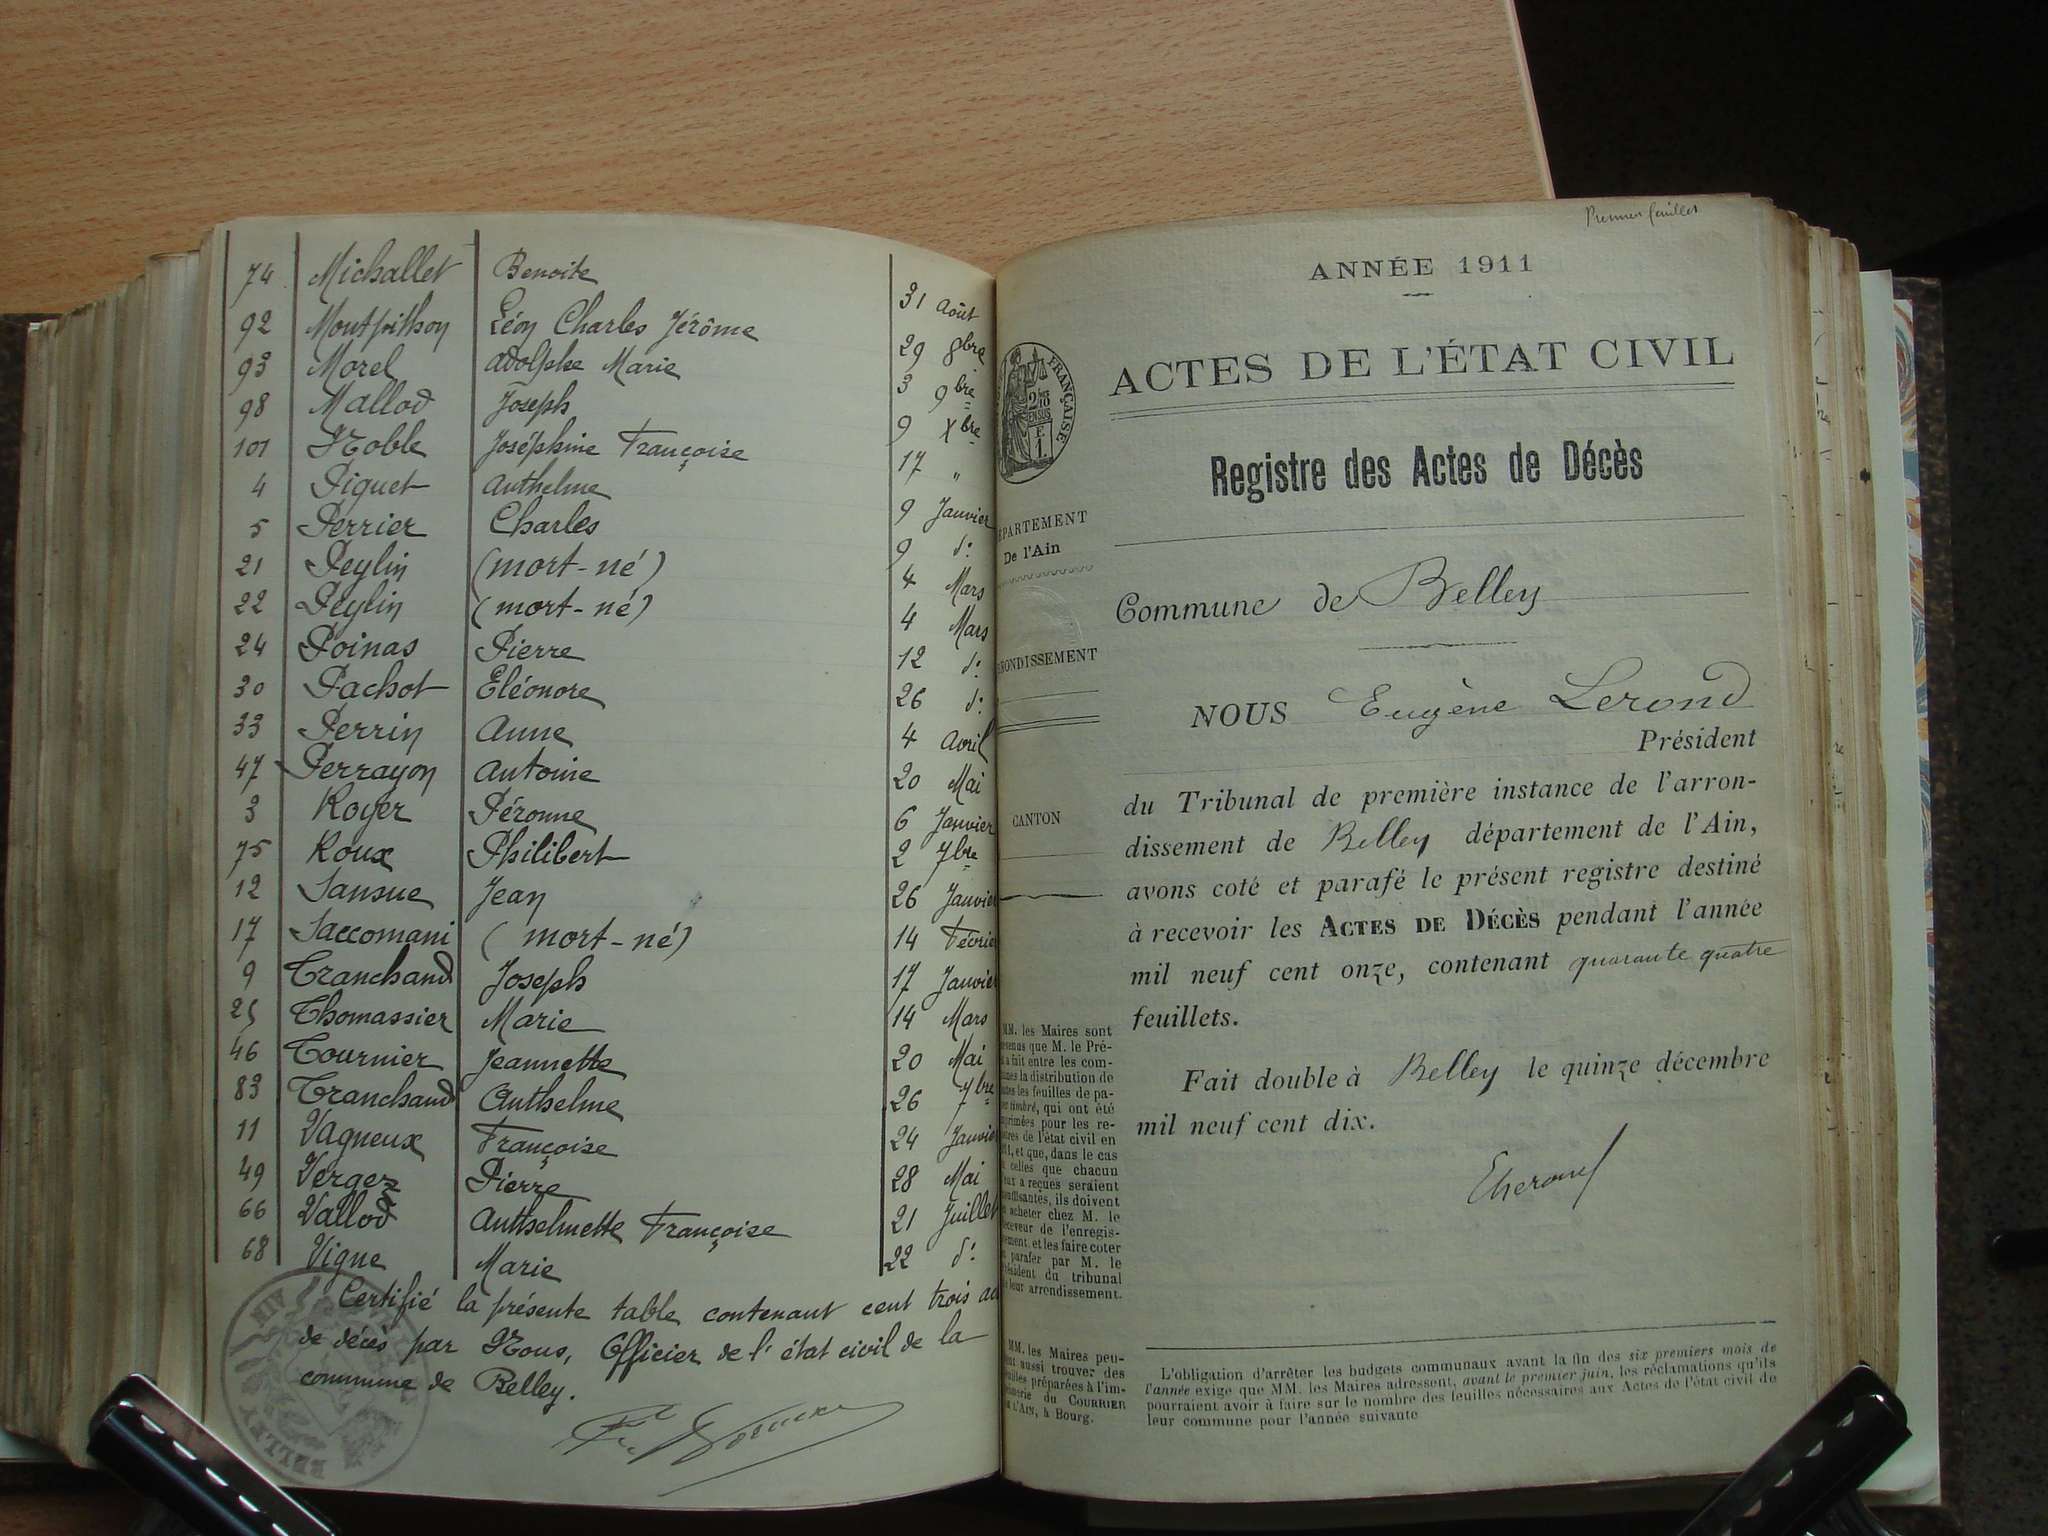 74 Michallet Benoite 31 Août
92 Montpithon Léon Charles Jérôme 29 8bre
93 Morel Adolphe Marie 3 9bre
98 Mallod Joseph 9 Xbre
101 Noble Joséphine Françoise 17 "
4 Piquet Anthelme 9 Janvier
5 Perrier Charles 9 d°
21 Peylin (mort-né) 4 Mars
22 Peylin (mort-né) 4 Mars
24 Poinas Pierre 12 d°
30 Pachot Eléonore 26 d°
33 Perrin Anne 4 Avril
47 Perrayon Antoine 20 Mai
3 Royer Péronne 6 Janvier
75 Roux Philibert 2 7bre
12 Sansue Jean 26 Janvier
17 Saccomani (mort-né) 14 Févrie
9 Tranchand Joseph 17 Janvier
25 Thomassier Marie 14 Mars
46 Tournier Jeannette 20 Mai
83 Tranchand Anthelme 26 7bre
11 Vagneux Françoise 24 Janvie
49 Verger Pierre 28 Mai
66 Vallod Anthelmette Françoise 21 Juillet
68 Vigne Marie 22 d°
Certifié la présente table contenant cent trois ac
de décès par Nous, Officier de l'état civil de la
commune de Belley.
BELLEY AIN
Premier feuillet
ANNÉE 1911
ACTES DE L'ÉTAT CIVIL
FRANÇAISE
Registre des Actes de Décès
ÉPARTEMENT
De l'Ain
Commune de Belley
RONDISSEMENT
NOUS Eugène Lerond
Président
CANTON
du Tribunal de première instance de l'arron-
dissement de Belley département de l'Ain,
avons coté et parafé le présent registre destiné
à recevoir les ACTES DE DÉCÈS pendant l'année
mil neuf cent onze, contenant quarante quatre
feuillets.
Fait double à Belley le quinze décembre
mil neuf cent dix.
MM. les Maires sont
enus que M. le Pré-
a fait entre les com-
nes la distribution de
tes les feuilles de pa-
r timbré, qui ont été
primées pour les re-
tres de l'état civil en
1, et que, dans le cas
celles que chacun
eux a reçues seraient
uffisantes, ils doivent
acheter chez M. le
eceveur de l'enregis-
ement, et les faire coter
parafer par M. le
résident du tribunal
leur arrondissement.
MM. les Maires peu-
nt aussi trouver des
uilles préparées à l'im-
merie du COURRIER
L'AIN, à Bourg.
L'obligation d'arrêter les budgets communaux avant la fin des six premiers mois de
l'année exige que MM. les Maires adressent, avant le premier juin, les réclamations qu'ils
pourraient avoir à faire sur le nombre des feuilles nécessaires aux Actes de l'état civil de
leur commune pour l'année suivante